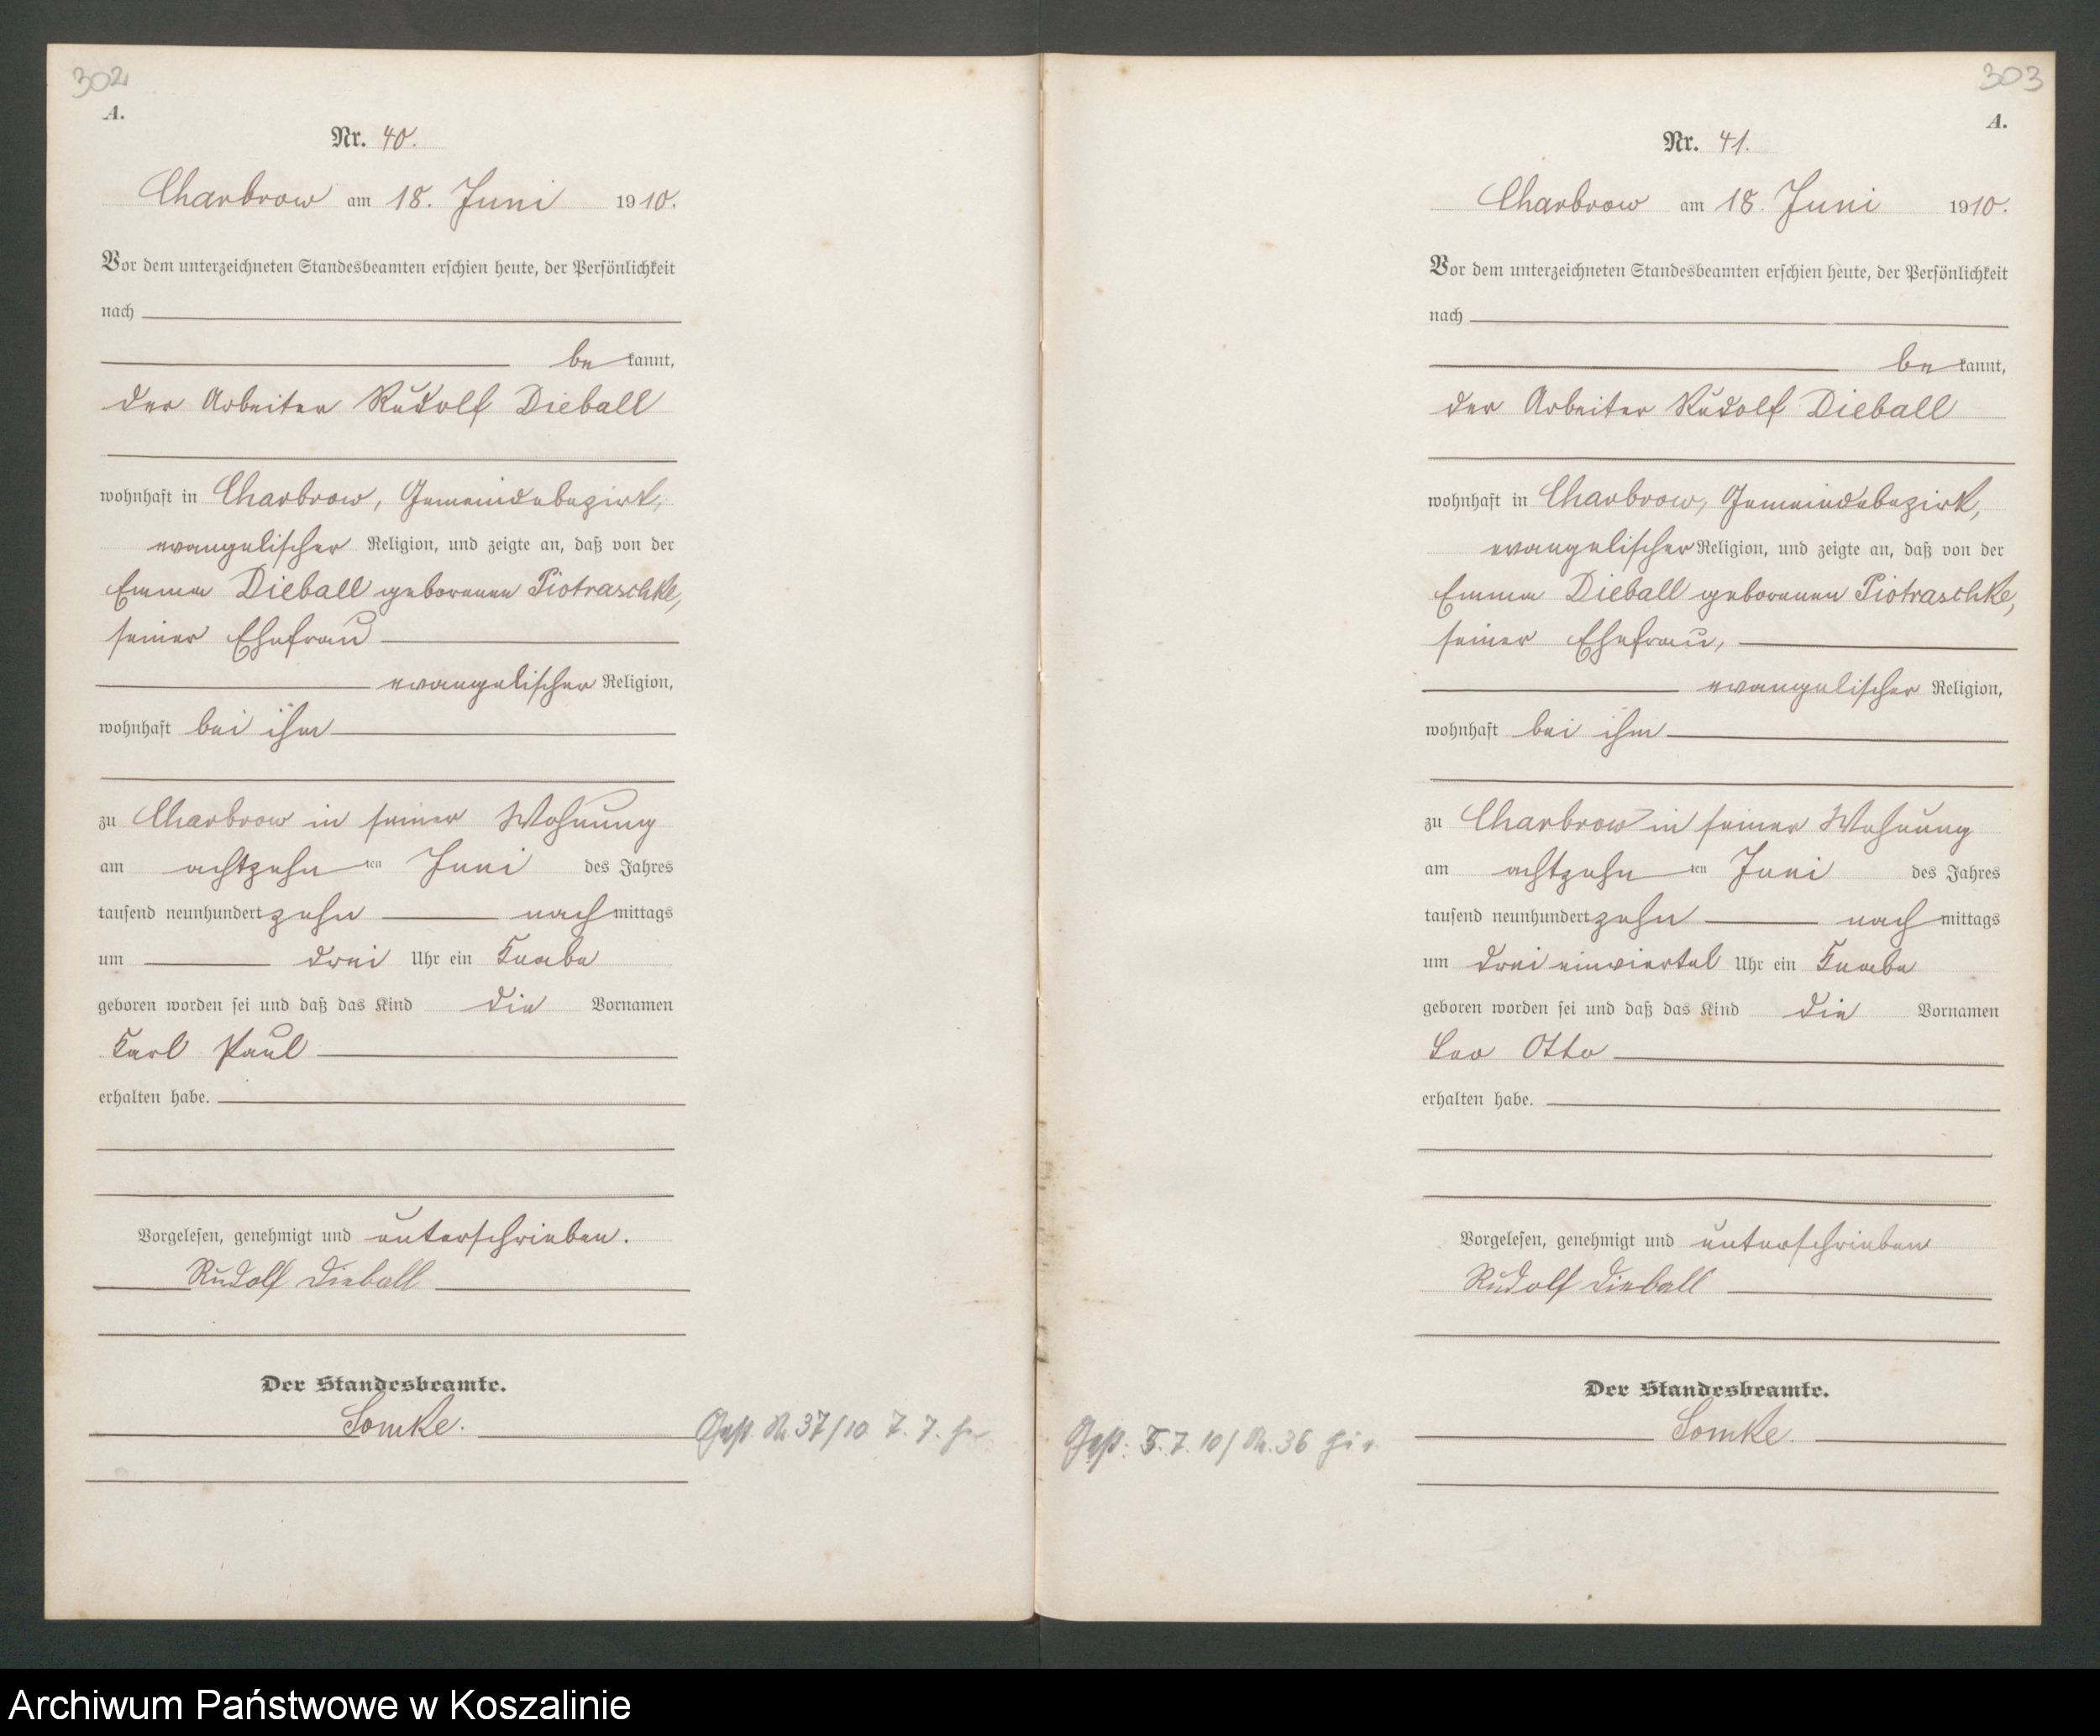 302
A.
Nr. 40.
Charbrow am 18. Juni 1910.
Vor dem unterzeichneten Standesbeamten erschien heute, der Persönlichkeit
nach
be kannt,
der Arbeiter Rudolf Dieball
wohnhaft in Charbrow, Gemeindebezirk,
evangelischer Religion, und zeigte an, daß von der
Emma Dieball geborenen Piotraschke,
seiner Ehefrau
evangelischer Religion,
wohnhaft bei ihm
zu Charbrow in seiner Wohnung
am achtzehn ten Juni des Jahres
tausend neunhundert zehn nach mittags
um drei Uhr ein Knabe
geboren worden sei und daß das Kind die Vornamen
Karl Paul
erhalten habe.
Vorgelesen, genehmigt und unterschrieben.
Rudolf Dieball
Der Standesbeamte.
Lomke.
Gest. Nr. 37/10 7. 7.
303
A.
Nr. 41.
Charbrow am 18. Juni 1910.
Vor dem unterzeichneten Standesbeamten erschien heute, der Persönlichkeit
nach
be kannt,
der Arbeiter Rudolf Dieball
wohnhaft in Charbrow, Gemeindebezirk,
evangelischer Religion, und zeigte an, daß von der
Emma Dieball geborenen Piotraschke,
seiner Ehefrau,
evangelischer Religion,
wohnhaft bei ihm
zu Charbrow in seiner Wohnung
am achtzehn ten Juni des Jahres
tausend neunhundert zehn nach mittags
um drei einviertel Uhr ein Knabe
geboren worden sei und daß das Kind die Vornamen
Leo Otto
erhalten habe.
Vorgelesen, genehmigt und unterschrieben
Rudolf Dieball
Der Standesbeamte.
Lomke.
Gest: 5. 7. 10/ Nr. 36
Archiwum Państwowe w Koszalinie